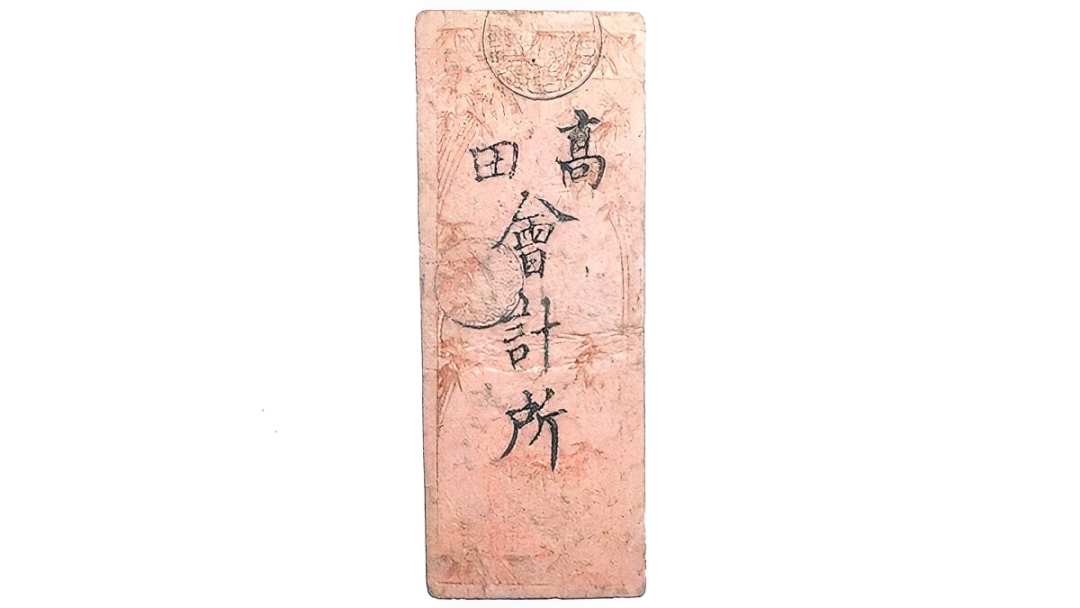 高田
會計所